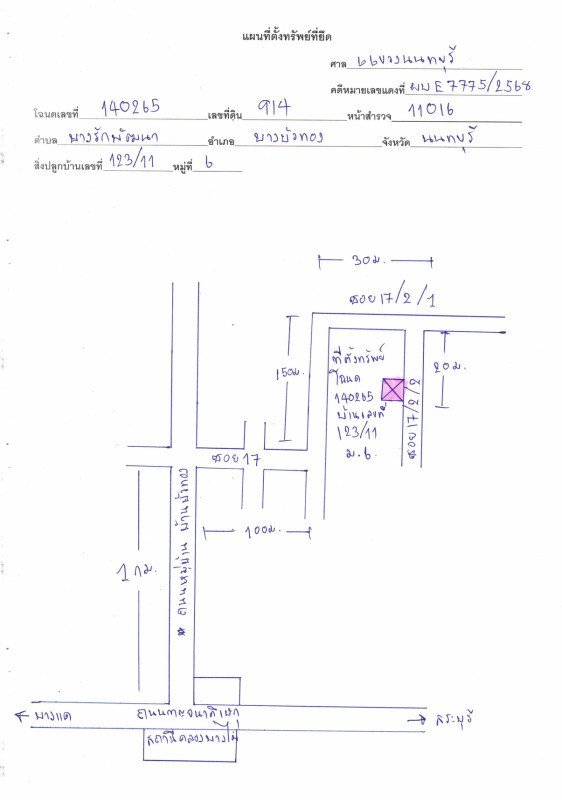 แผนที่ตั้งทรัพย์ที่ยึด
ศาล แขวงนนทบุรี
คดีหมายเลขแดงที่ ผบE7775/2568
โฉนดเลขที่ 140265 เลขที่ดิน 914 หน้าสำรวจ 11016
ตำบล บางรักพัฒนา อำเภอ บางบัวทอง จังหวัด นนทบุรี
สิ่งปลูกบ้านเลขที่ 123/11 หมู่ที่ 6
30ม.
ซอย 17/2/1
150ม.
ที่ตั้งทรัพย์
โฉนด
140265
บ้านเลขที่
123/11
ม.6.
20ม.
ซอย 17/2/2
ซอย 17
100ม.
1 กม.
ถนนหมู่บ้าน บ้านบัวทอง
บางแค
ถนนกาญจนาภิเษก
สระบุรี
สถานีคลองบางไผ่